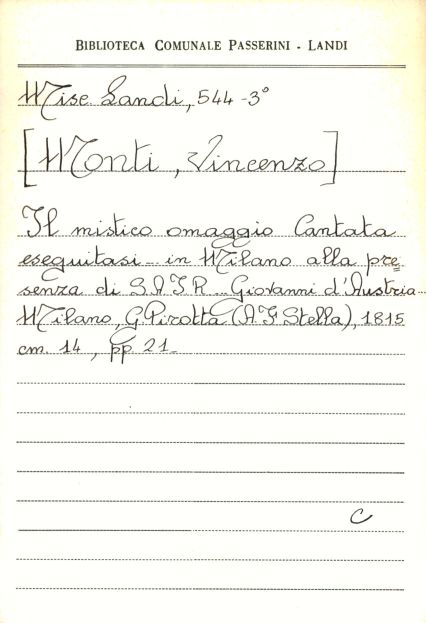 BIBLIOTECA COMUNALE PASSERINI - LANDI
Misc Landi, 544 - 3°
[Monti, Vincenzo]
Il mistico omaggio Cantata
eseguitasi in Milano alla pre=
senza di S.A.I.R. Giovanni d'Austria
Milano, G Pirotta (A F Stella), 1815
cm. 14, pp 21
C